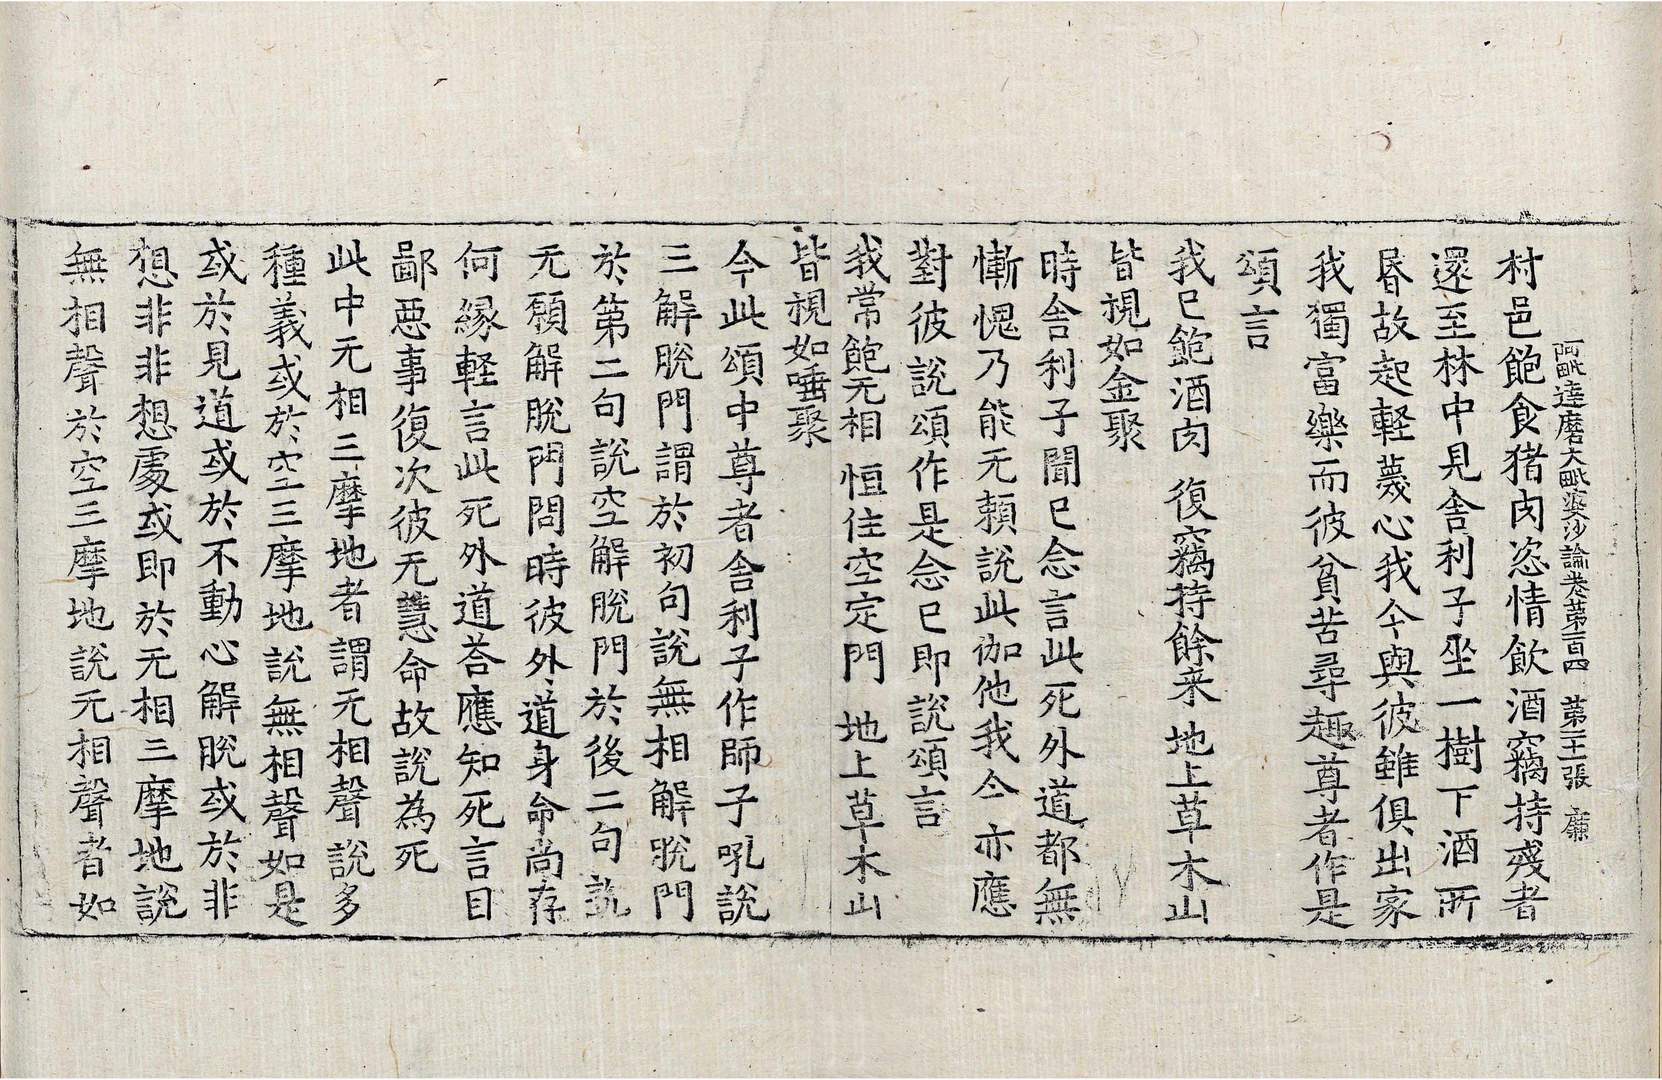 阿毗達磨大毗婆沙論卷第一百四　第二十一張　廉
村邑飽食猪肉恣情飲酒竊持殘者
還至林中見舍利子坐一樹下酒所
昬故起軽蔑心我今與彼雖俱出家
我獨富樂而彼貧苦尋趣尊者作是
頌言
我已飽酒肉　復竊持餘来　地上草木山
皆視如金聚
時舍利子聞已念言此死外道都無
慚愧乃能无頼說此伽他我今亦應
對彼說頌作是念已即說頌言
我常飽无相　恒住空定門　地上草木山
皆視如唾聚
今此頌中尊者舍利子作師子吼說
三解脫門謂於初句說無相解脫門
於第二句說空解脫門於後二句說
无願解脫門問時彼外道身命尚存
何緣軽言此死外道荅應知死言目
鄙惡事復次彼无慧命故說為死
此中无相三摩地者謂无相聲說多
種義或於空三摩地說無相聲如是
或於見道或於不動心解脫或於非
想非非想處或即於无相三摩地說
無相聲於空三摩地說无相聲者如